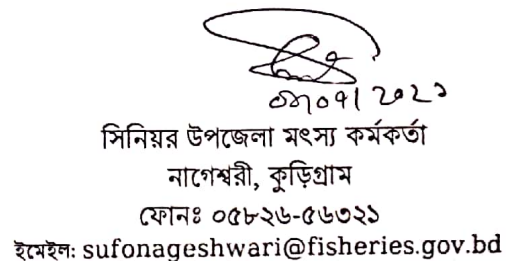 সিনিয়র উপজেলা মৎস্য কর্মকর্তা
নাগেশ্বরী, কুড়িগ্রাম
ফোনঃ ০৫৮২৬-৫৬৩২১
ইমেইল: sufonageshwari@fisheries.gov.bd